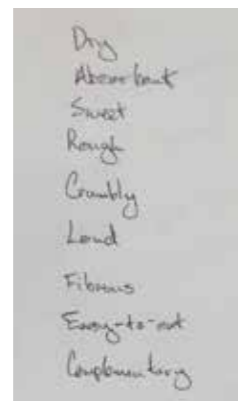 Dry
Absorbant
Sweet
Rough
Crumbly
Loud
Fibrous
Easy-to-eat
Complementary